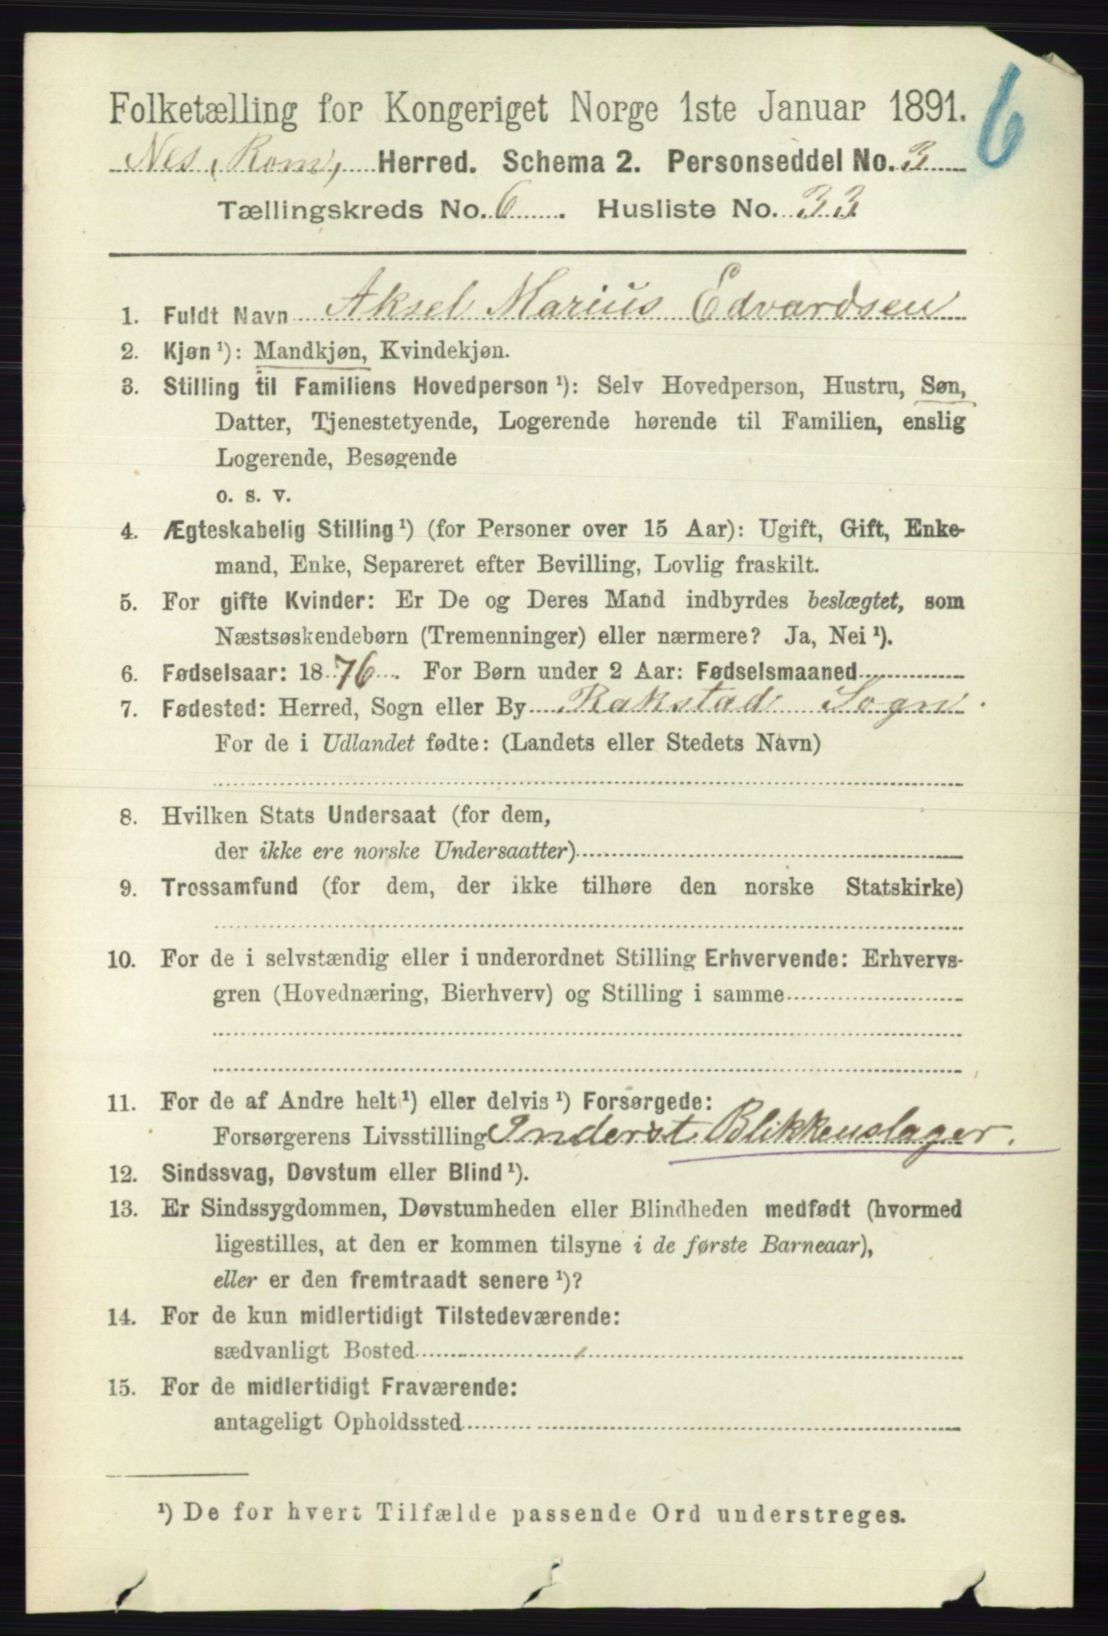 6
Folketælling for Kongeriget Norge 1ste Januar 1891.
Nes, Rom, Herred. Schema 2. Personseddel No. 3
Tællingskreds No. 6. Husliste No. 33
1. Fuldt Navn Aksel Marius Edvardsen
2. Kjøn ¹): Mandkjøn, Kvindekjøn.
3. Stilling til Familiens Hovedperson ¹): Selv Hovedperson, Hustru, Søn,
Datter, Tjenestetyende, Logerende hørende til Familien, enslig
Logerende, Besøgende
o. s. v.
4. Ægteskabelig Stilling ¹) (for Personer over 15 Aar): Ugift, Gift, Enke-
mand, Enke, Separeret efter Bevilling, Lovlig fraskilt.
5. For gifte Kvinder: Er De og Deres Mand indbyrdes beslægtet, som
Næstsøskendebørn (Tremenninger) eller nærmere? Ja, Nei ¹).
6. Fødselsaar: 1876. For Børn under 2 Aar: Fødselsmaaned
7. Fødested: Herred, Sogn eller By Rakstad Sogn.
For de i Udlandet fødte: (Landets eller Stedets Navn)
8. Hvilken Stats Undersaat (for dem,
der ikke ere norske Undersaatter)
9. Trossamfund (for dem, der ikke tilhøre den norske Statskirke)
10. For de i selvstændig eller i underordnet Stilling Erhvervende: Erhvervs-
gren (Hovednæring, Bierhverv) og Stilling i samme
11. For de af Andre helt ¹) eller delvis ¹) Forsørgede:
Forsørgerens Livsstilling Inderst Blikkenslager.
12. Sindssvag, Døvstum eller Blind ¹).
13. Er Sindssygdommen, Døvstumheden eller Blindheden medfødt (hvormed
ligestilles, at den er kommen tilsyne i de første Barneaar),
eller er den fremtraadt senere ¹)?
14. For de kun midlertidigt Tilstedeværende:
sædvanligt Bosted
15. For de midlertidigt Fraværende:
antageligt Opholdssted
¹) De for hvert Tilfælde passende Ord understreges.